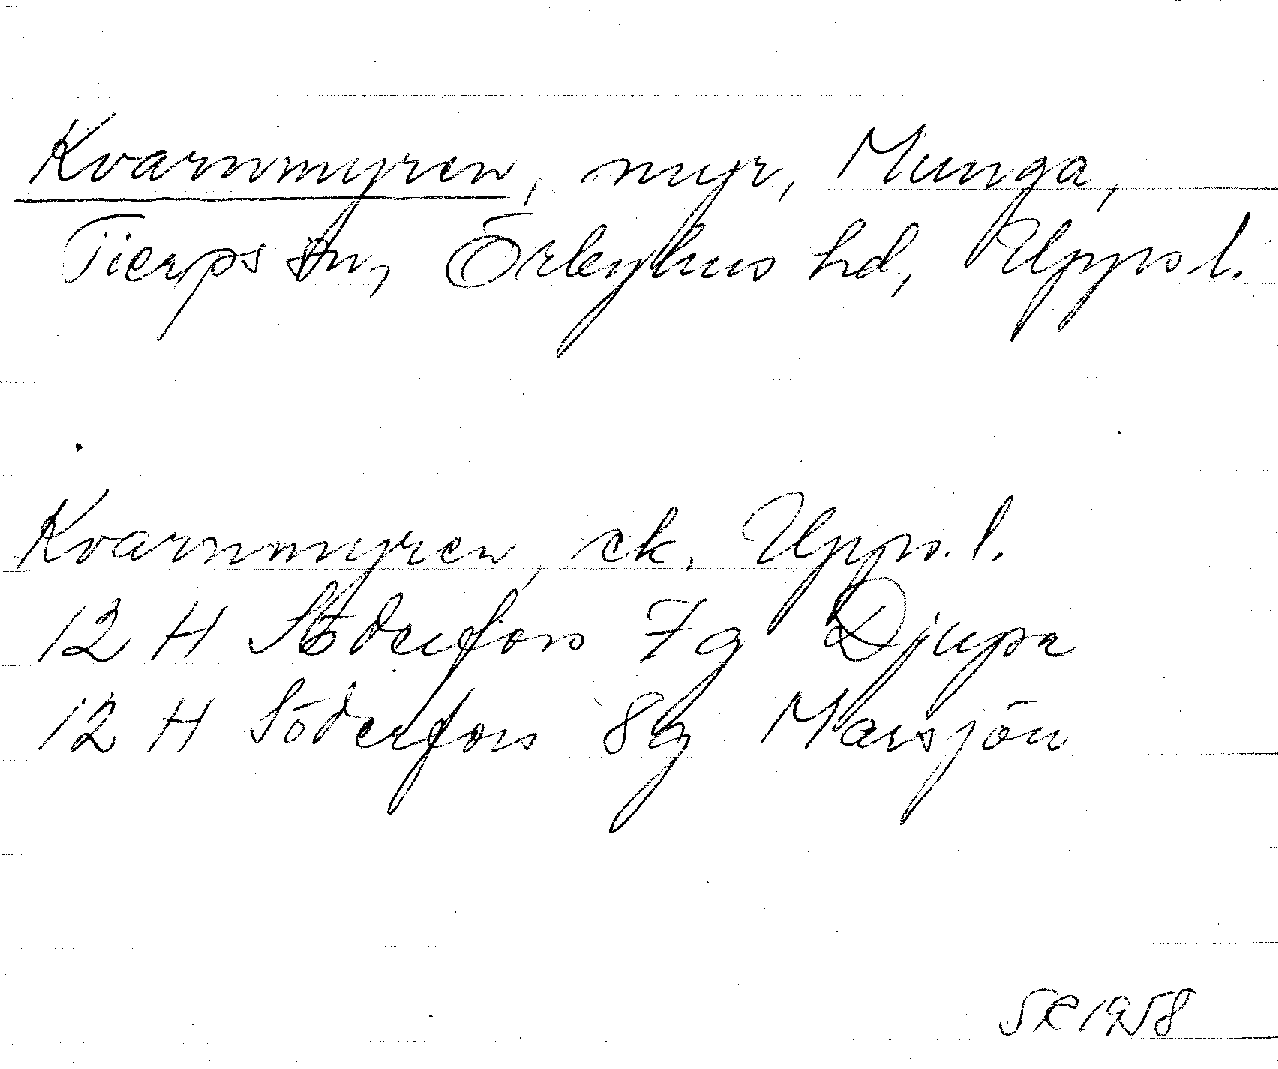 Kvarnmyren, myr, Munga,
Tierps sn, Örbyhus hd, Upps l.
Kvarnmyren, ek. Upps. l.
12 H Söderfors 7 g Djupa
12 H Söderfors 8 g Marsjön
SR 1958